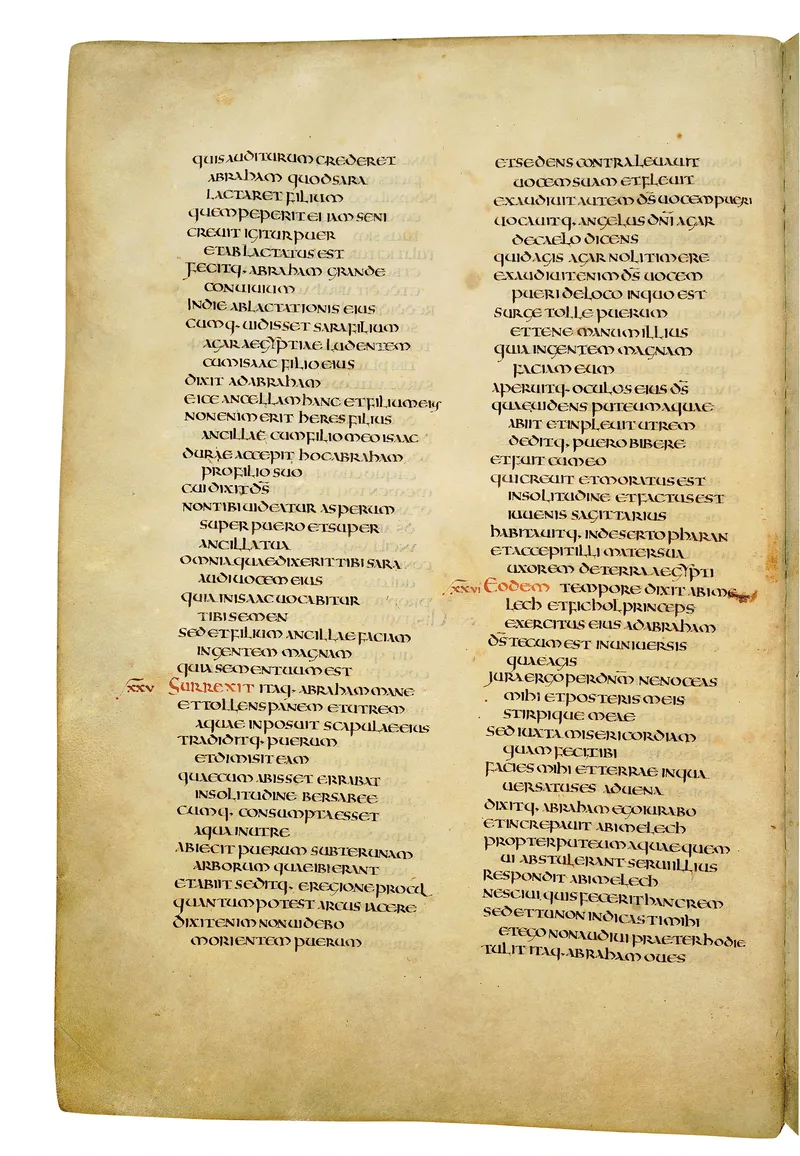 QUIS AUDITURUM CREDERET
ABRAHAM QUOD SARA
LACTARET FILIUM
QUEM PEPERIT EI IAM SENI
CREUIT IGITUR PUER
ET ABLACTATUS EST
FECITQ· ABRAHAM GRANDE
CONUIUIUM
IN DIE ABLACTATIONIS EIUS
CUMQ· UIDISSET SARA FILIUM
AGAR AEGYPTIAE LUDENTEM
CUM ISAAC FILIO EIUS
DIXIT AD ABRAHAM
EICE ANCELLAM HANC ET FILIUM EIUS
NON ENIM ERIT HERES FILIUS
ANCILLAE CUM FILIO MEO ISAAC
DURAE ACCEPIT HOC ABRAHAM
PRO FILIO SUO
CUI DIXIT D̅S̅
NON TIBI UIDEATUR ASPERUM
SUPER PUERO ET SUPER
ANCILLA TUA
OMNIA QUAE DIXERIT TIBI SARA
AUDI UOCEM EIUS
QUIA IN ISAAC UOCABITUR
TIBI SEMEN
SED ET FILIUM ANCILLAE FACIAM
IN GENTEM MAGNAM
QUIA SEMEN TUUM EST
XXV SURREXIT ITAQ· ABRAHAM MANE
ET TOLLENS PANEM ET UTREM
AQUAE INPOSUIT SCAPULAE EIUS
TRADIDITQ· PUERUM
ET DIMISIT EAM
QUAE CUM ABISSET ERRABAT
IN SOLITUDINE BERSABEE
CUMQ· CONSUMPTA ESSET
AQUA IN UTRE
ABIECIT PUERUM SUBTER UNAM
ARBORUM QUAE IBI ERANT
ET ABIIT SEDITQ· E REGIONE PROCUL
QUANTUM POTEST ARCUS IACERE
DIXIT ENIM NON UIDEBO
MORIENTEM PUERUM
ET SEDENS CONTRA LEUAUIT
UOCEM SUAM ET FLEUIT
EXAUDIUIT AUTEM D̅S̅ UOCEM PUERI
UOCAUITQ· ANGELUS D̅N̅I̅ AGAR
DE CAELO DICENS
QUID AGIS AGAR NOLI TIMERE
EXAUDIUIT ENIM D̅S̅ UOCEM
PUERI DE LOCO IN QUO EST
SURGE TOLLE PUERUM
ET TENE MANUM ILLIUS
QUIA IN GENTEM MAGNAM
FACIAM EUM
APERUITQ· OCULOS EIUS D̅S̅
QUAE UIDENS PUTEUM AQUAE
ABIIT ET INPLEUIT UTREM
DEDITQ· PUERO BIBERE
ET FUIT CUM EO
QUI CREUIT ET MORATUS EST
IN SOLITUDINE ET FACTUS EST
IUUENIS SAGITTARIUS
HABITAUITQ· IN DESERTO PHARAN
ET ACCEPIT ILLI MATER SUA
UXOREM DE TERRA AEGYPTI
XXVI EODEM TEMPORE DIXIT ABIME
LECH ET FICHOL PRINCEPS
EXERCITUS EIUS AD ABRAHAM
D̅S̅ TECUM EST IN UNIUERSIS
QUAE AGIS
JURA ERGO PER DN̅M̅ NE NOCEAS
MIHI ET POSTERIS MEIS
STIRPIQUE MEAE
SED IUXTA MISERICORDIAM
QUAM FECI TIBI
FACIES MIHI ET TERRAE IN QUA
UERSATUS ES ADUENA
DIXITQ· ABRAHAM EGO IURABO
ET INCREPAUIT ABIMELECH
PROPTER PUTEUM AQUAE QUEM
UI ABSTULERANT SERUI ILLIUS
RESPONDIT ABIMELECH
NESCIUI QUIS FECERIT HANC REM
SED ET TU NON INDICASTI MIHI
ET EGO NON AUDIUI PRAETER HODIE
TULIT ITAQ· ABRAHAM OUES